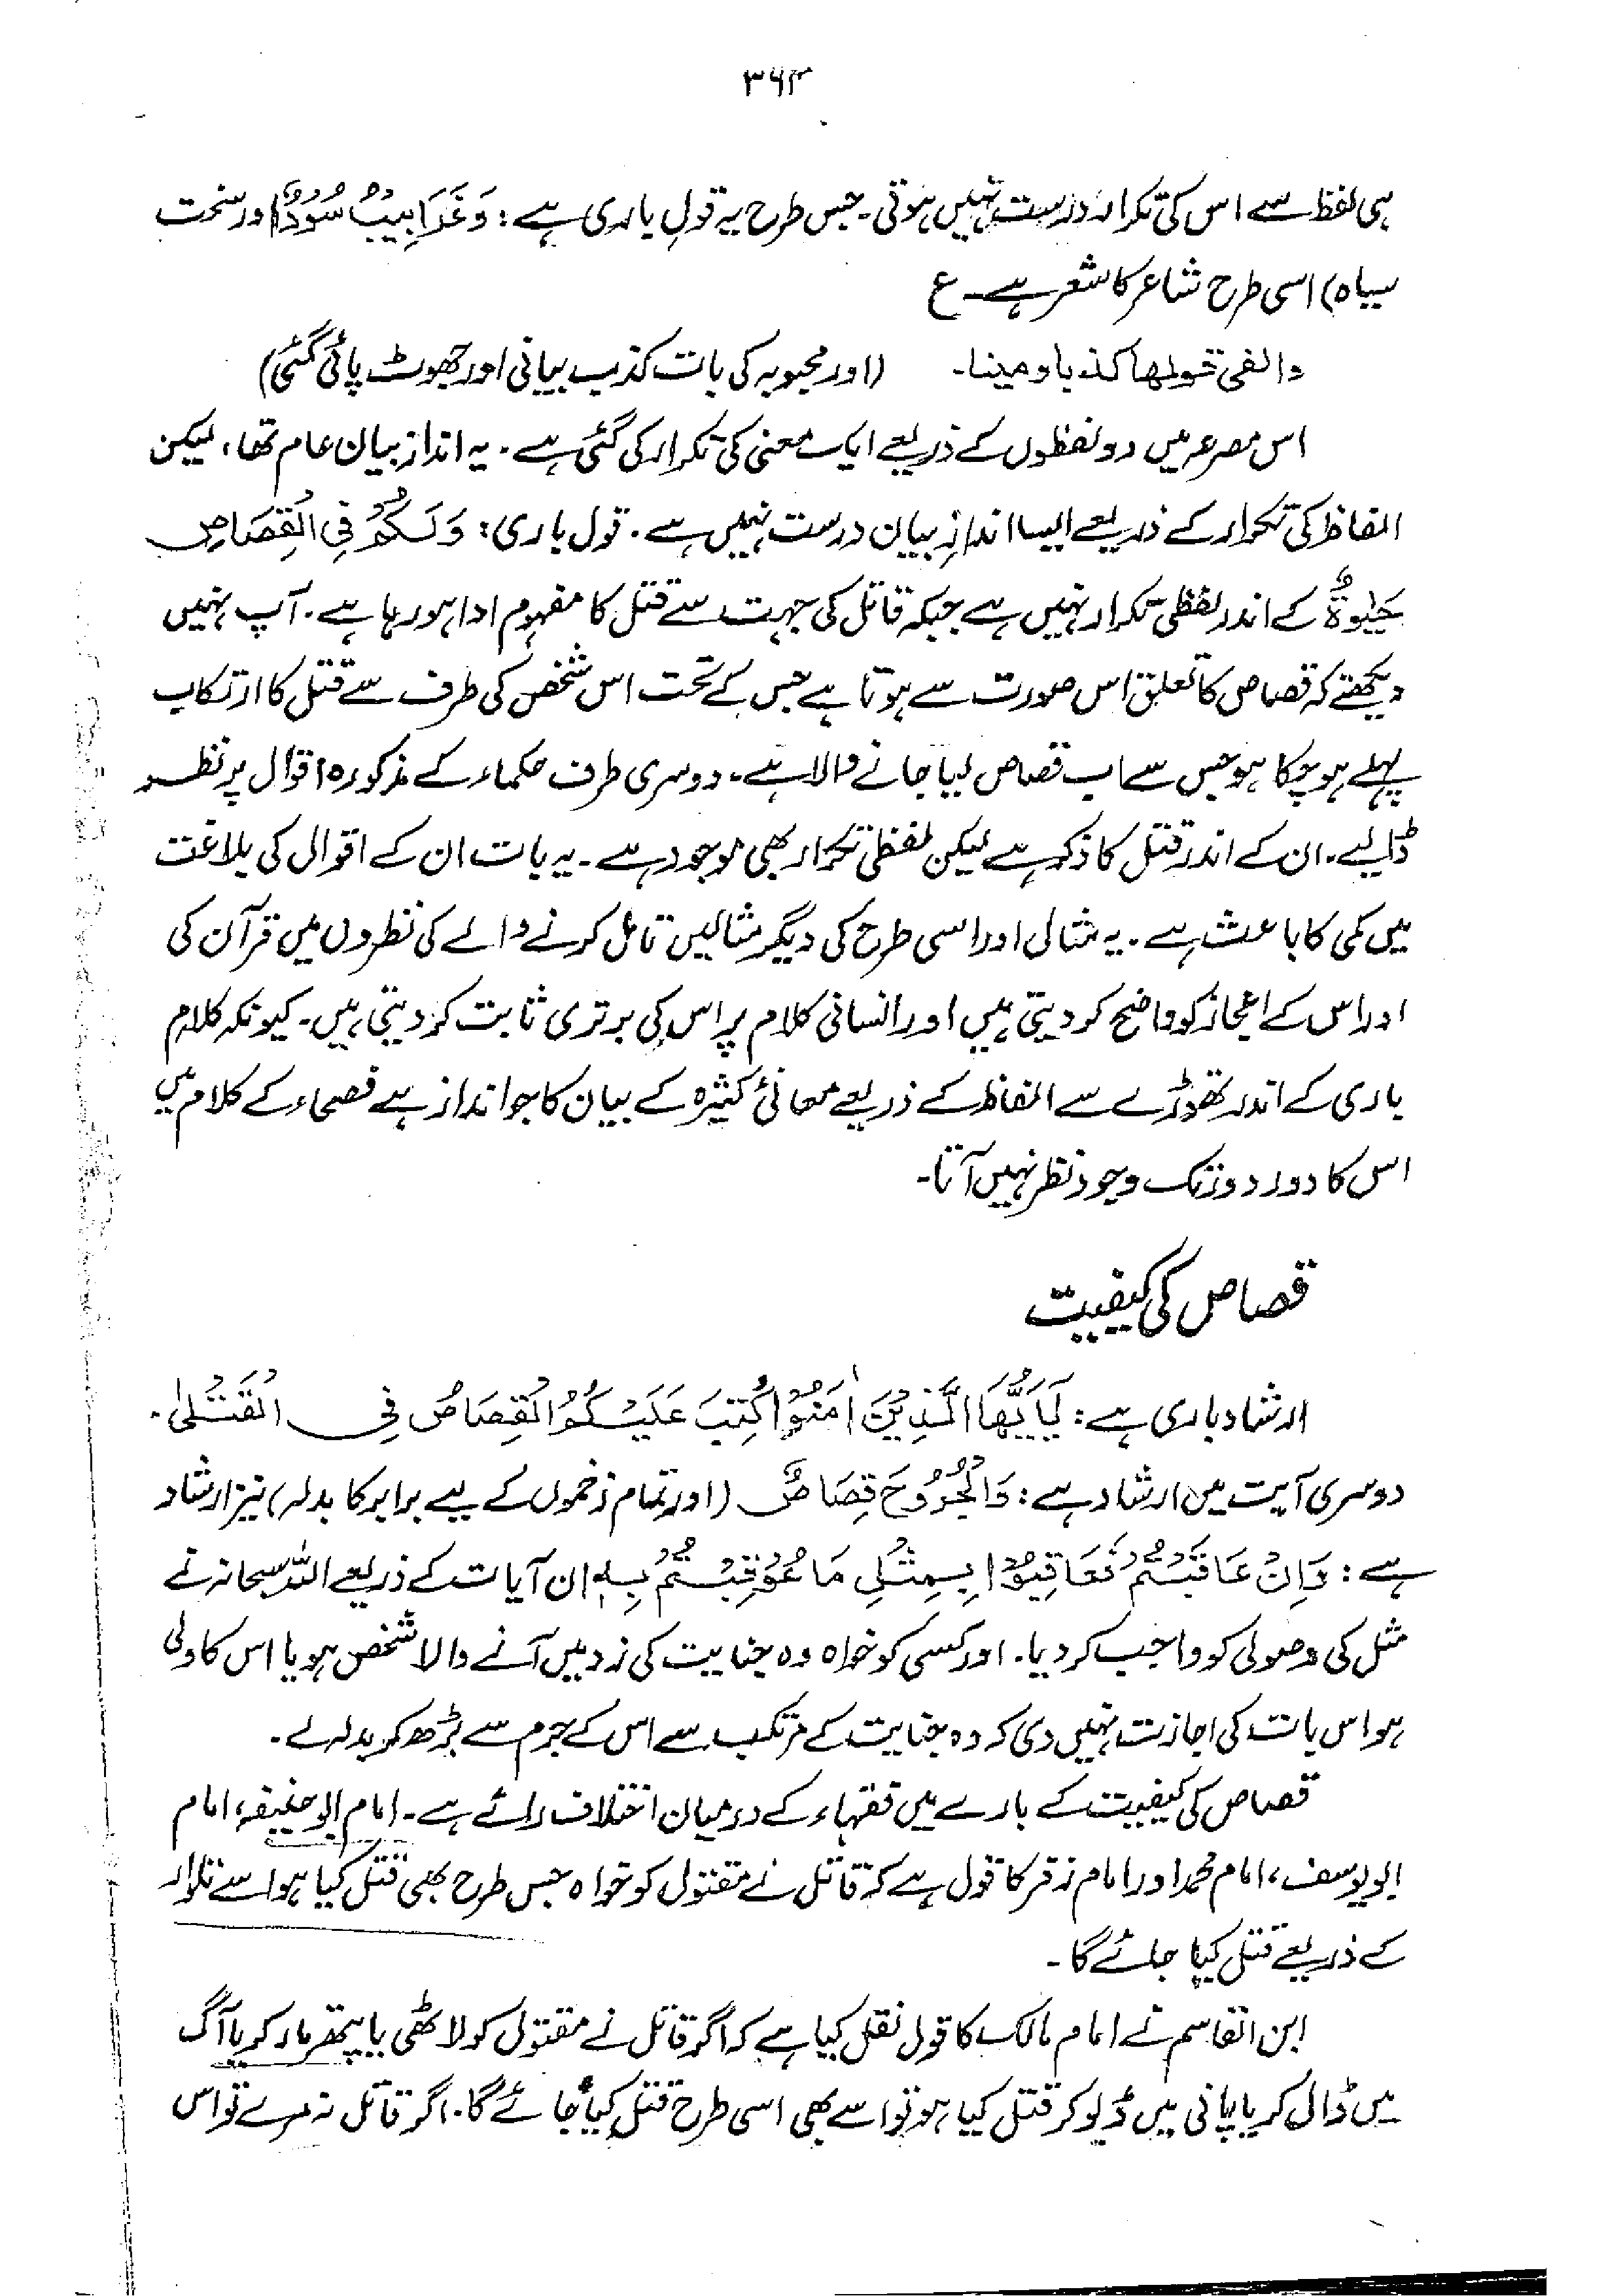 ۳۶۳
ہی لفظ سے اس کی تکرار درست نہیں ہوتی۔ جس طرح یہ قولِ باری ہے: وَغَرَابِيْبُ سُوْدٌ (اور سخت
سیاہ) اسی طرح شاعر کا شعر ہے۔ ع
والفی قولھا کذبا ومینا۔ (اور محبوبہ کی بات کذب بیانی اور جھوٹ پائی گئی)
اس مصرعہ میں دو لفظوں کے ذریعے ایک معنی کی تکرار کی گئی ہے۔ یہ انداز بیان عام تھا، لیکن
الفاظ کی تکرار کے ذریعے ایسا اندازِ بیان درست نہیں ہے۔ قول باری: وَلَكُمْ فِي الْقِصَاصِ
حَيٰوةٌ کے اندر لفظی تکرار نہیں ہے جبکہ قاتل کی جہت سے قتل کا مفہوم ادا ہو رہا ہے۔ آپ نہیں
دیکھتے کہ قصاص کا تعلق اس صورت سے ہوتا ہے جس کے تحت اس شخص کی طرف سے قتل کا ارتکاب
پہلے ہو چکا ہو جس سے اب قصاص لیا جانے والا ہے۔ دوسری طرف حکماء کے مذکورہ اقوال پر نظر
ڈالیے۔ ان کے اندر قتل کا ذکر ہے لیکن لفظی تکرار بھی موجود ہے۔ یہ بات ان کے اقوال کی بلاغت
میں کمی کا باعث ہے۔ یہ مثالی اور اسی طرح کی دیگر مثالیں تامل کرنے والے کی نظروں میں قرآن کی
اور اس کے اعجاز کو واضح کر دیتی ہیں اور انسانی کلام پر اس کی برتری ثابت کر دیتی ہیں۔ کیونکہ کلام
باری کے اندر تھوڑے سے الفاظ کے ذریعے معانیٔ کثیرہ کے بیان کا جو انداز ہے فصحاء کے کلام میں
اس کا دور دور تک وجود نظر نہیں آتا۔
قصاص کی کیفیت
ارشاد باری ہے: يٰٓاَيُّهَا الَّذِيْنَ اٰمَنُوْا كُتِبَ عَلَيْكُمُ الْقِصَاصُ فِي الْقَتْلٰى۔
دوسری آیت میں ارشاد ہے: وَالْجُرُوْحَ قِصَاصٌ (اور تمام زخموں کے لیے برابر کا بدلہ) نیز ارشاد
ہے: وَاِنْ عَاقَبْتُمْ فَعَاقِبُوْا بِمِثْلِ مَا عُوْقِبْتُمْ بِهٖ ان آیات کے ذریعے اللہ سبحانہ نے
مثل کی وصولی کو واجب کر دیا۔ اور کسی کو خواہ وہ جنایت کی زد میں آنے والا شخص ہو یا اس کا ولی
ہو اس بات کی اجازت نہیں دی کہ وہ جنایت کے مرتکب سے اس کے جرم سے بڑھ کر بدلہ لے۔
قصاص کی کیفیت کے بارے میں فقہاء کے درمیان اختلاف رائے ہے۔ امام ابو حنیفہ، امام
ابو یوسف، امام محمد اور امام زفر کا قول ہے کہ قاتل نے مقتول کو خواہ جس طرح بھی قتل کیا ہو اسے تلوار
کے ذریعے قتل کیا جائے گا۔
ابن القاسم نے امام مالک کا قول نقل کیا ہے کہ اگر قاتل نے مقتول کو لاٹھی یا پتھر مار کر یا آگ
میں ڈال کر یا پانی میں ڈبو کر قتل کیا ہو تو اسے بھی اسی طرح قتل کیا جائے گا۔ اگر قاتل نہ مرے تو اس